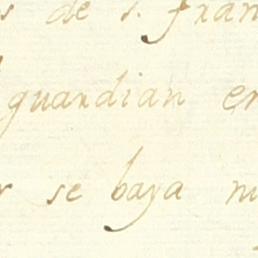 s de s. fran
guardian en
r se baya n